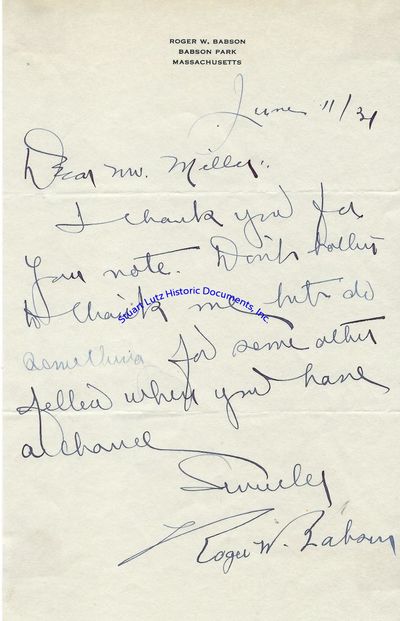 ROGER W. BABSON
BABSON PARK
MASSACHUSETTS
June 11/31
Dear Mr. Miller:
I thank you for
your note. Don't bother
to thank me but do
Stuart Lutz Historic Documents, Inc.
something for some other
fellow when you have
a chance
Sincerely
Roger W. Babson